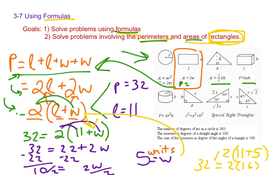 3-7 Using Formulas
Goals: 1) Solve problems using formulas.
2) Solve problems involving the perimeters and areas of rectangles.
P = l + l + w + w
P = 32
= 2l + 2w
= 2(l + w)
l = 11
32 = 2(11 + w)
32 = 22 + 2w
-22 -22
10/2 = 2w/2
units
5 = w
2(11+5)
32 = 2(16)
A = lw
Special Right Triangles
The number of degrees of arc in a circle is 360.
The measure in degrees of a straight angle is 180.
The sum of the measures in degrees of the angles of a triangle is 180.